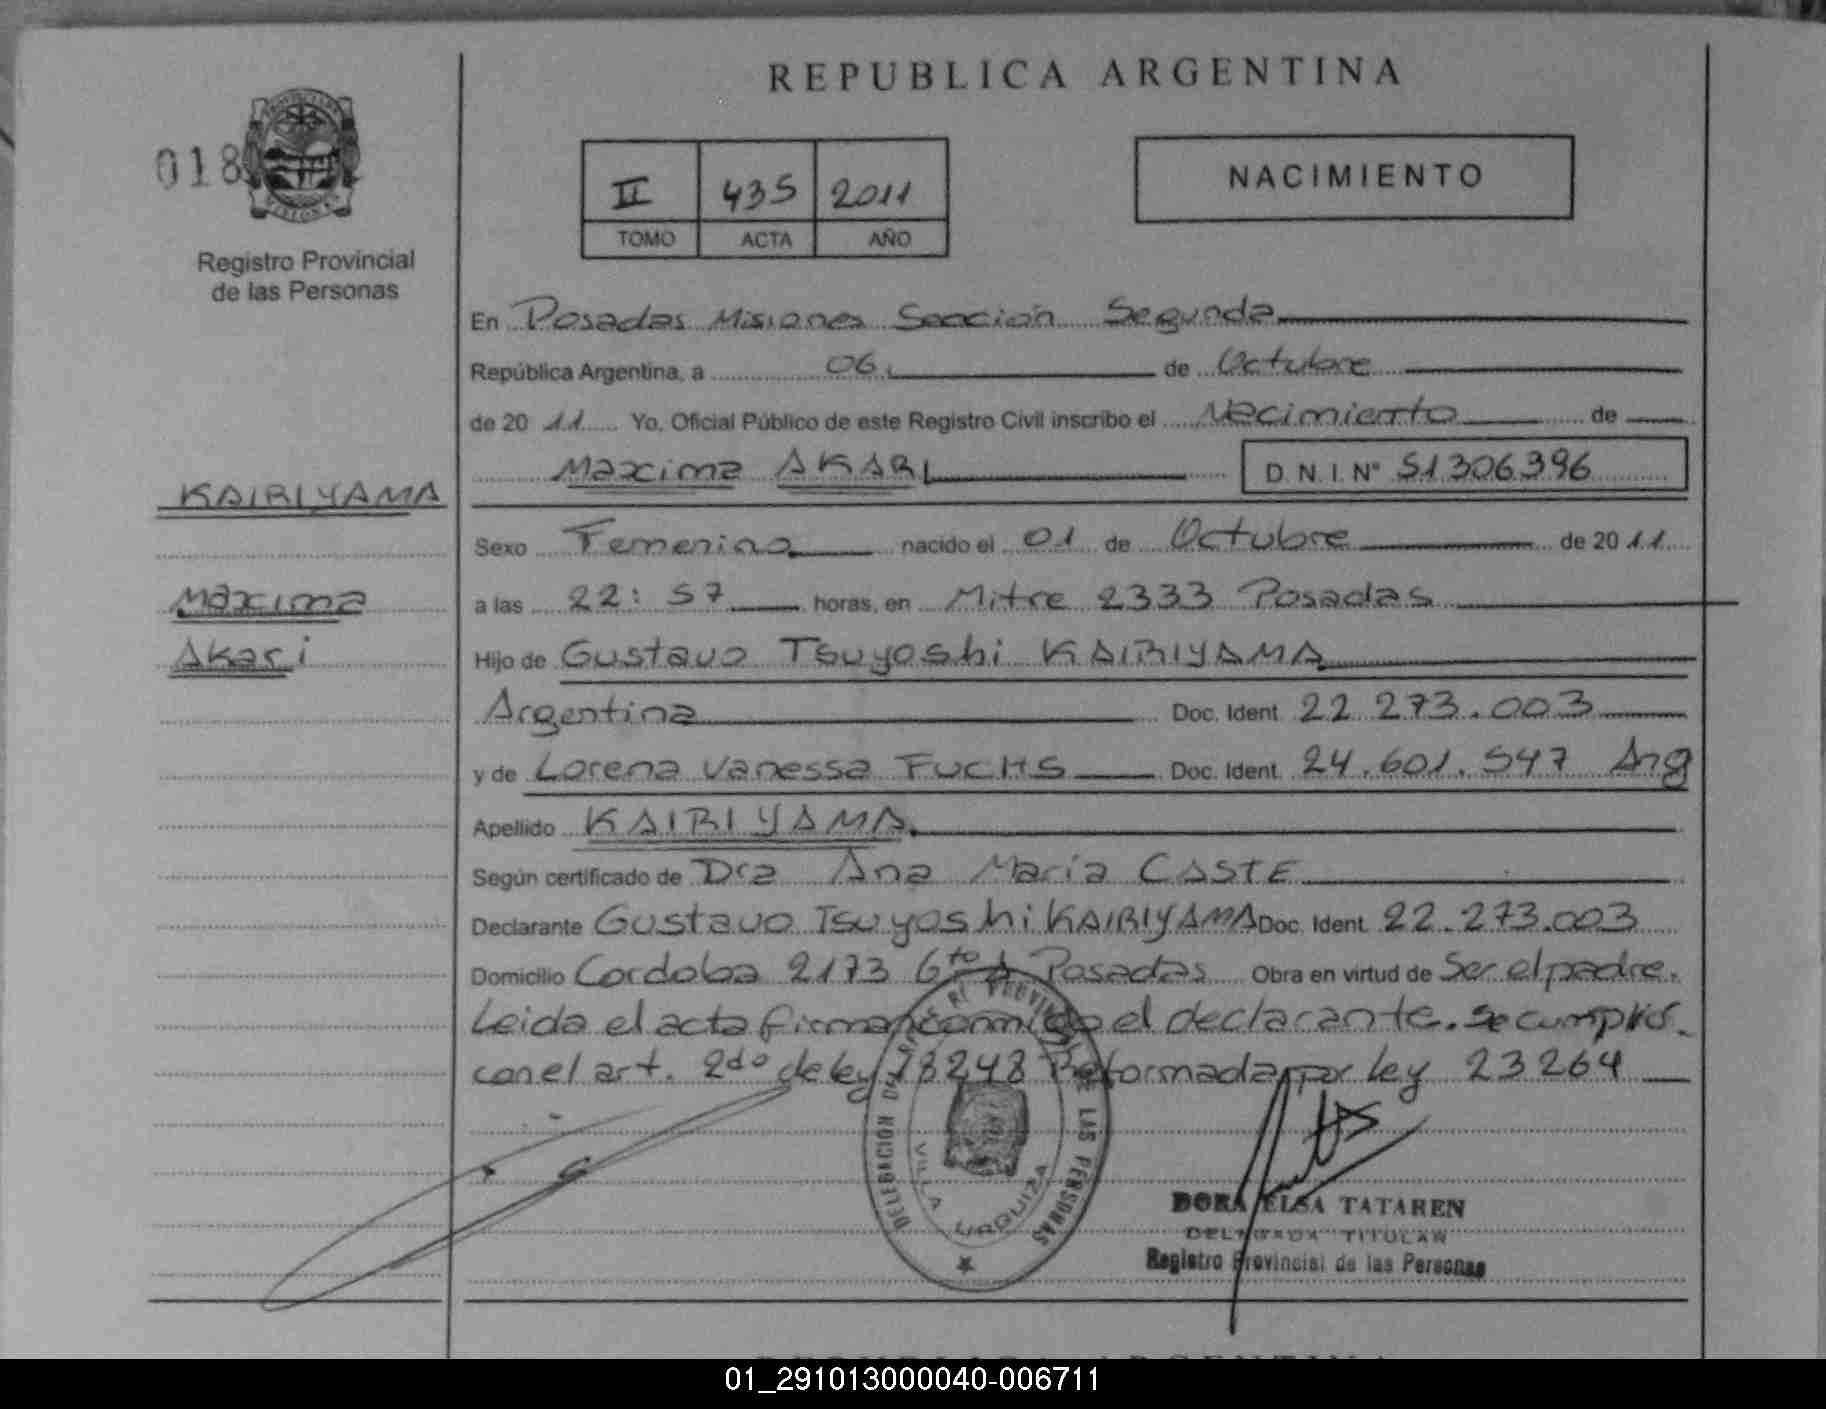 REPUBLICA ARGENTINA
018
Registro Provincial
de las Personas
II 435 2011
TOMO ACTA AÑO
NACIMIENTO
En Posadas Misiones Sección Segunda
República Argentina, a 06 de Octubre
de 2011 Yo, Oficial Público de este Registro Civil inscribo el Nacimiento de
Maxima AKARI D.N.I. Nº 51306396
KAIRIYAMA
Maxima
Akari
Sexo Femenino nacido el 01 de Octubre de 2011
a las 22:57 horas, en Mitre 2333 Posadas
Hijo de Gustavo Tsuyoshi KAIRIYAMA
Argentina Doc. Ident. 22.273.003
y de Lorena Vanessa FUCHS Doc. Ident. 24.601.547 Arg
Apellido KAIRIYAMA
Según certificado de Dra Ana María CASTE
Declarante Gustavo Tsuyoshi KAIRIYAMA Doc. Ident. 22.273.003
Domicilio Cordoba 2173 6to A Posadas Obra en virtud de Ser el padre.
Leida el acta firman conmigo el declarante. Se cumplió
con el art. 2do de ley 18248 Reformada por ley 23264
DELEGACION DEL REGISTRO PROVINCIAL DE LAS PERSONAS
VILLA URQUIZA
DORA ELSA TATAREN
DELEGADA TITULAR
Registro Provincial de las Personas
01_291013000040-006711